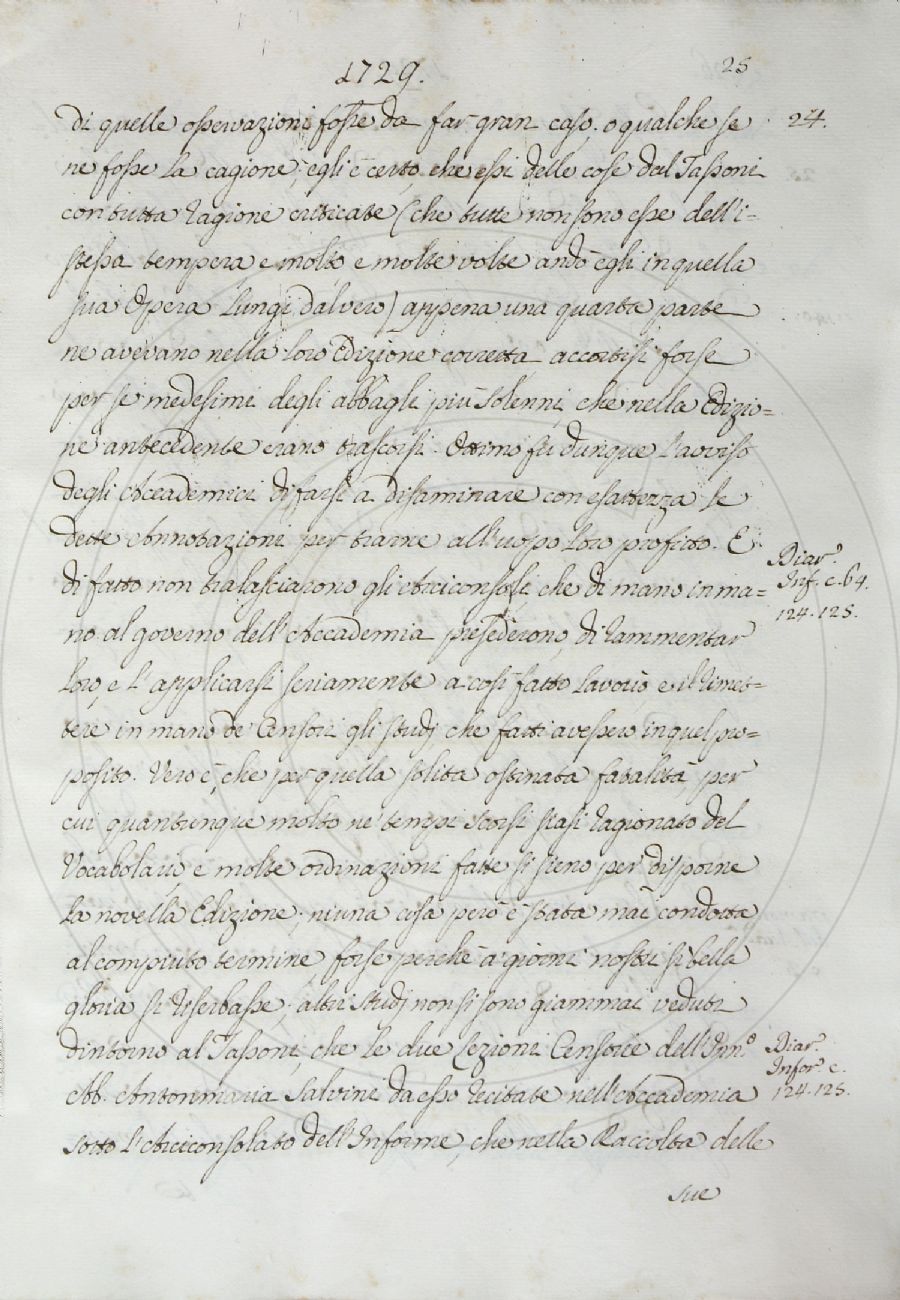 1729.
25
24.
di quelle osservazioni fosse da far gran caso, o qualche se
ne fosse la cagione; egli è certo, che essi delle cose dal Tassoni
con tutta ragione criticate (che tutte non sono esse dell'i=
stessa tempera e molto e molte volte andò egli in quella
sua Opera lungi dal vero) appena una quarta parte
ne avevano nella loro Edizione corretta, accortisi forse
per se medesimi degli abbagli più solenni, che nella Edizio=
ne antecedente erano trascorsi. Ottimo fu dunque l'avviso
degli Accademici di farsi a disaminare con esattezza le
dette Annotazioni per trarne all'uopo loro profitto. E
di fatto non tralasciarono gli Arciconsoli, che di mano in ma=
no al governo dell'Accademia presederono, di rammentar
loro, e l'applicarsi seriamente a così fatto lavoro, e il rimet=
tere in mano de' Censori gli studj che fatti avessero in quel pro=
posito. Vero è, che per quella solita ostinata fatalità, per
cui quantunque molto ne' tempi scorsi siasi ragionato del
Vocabolario, e molte ordinazioni fatte si sieno per disporne
la novella Edizione, niuna cosa però è stata mai condotta
al compiuto termine, forse perchè a' giorni nostri sì bella
gloria si riserbasse; altri studj non si sono giammai veduti
dintorno al Tassoni, che le due Lezioni Censorie dell'Inn.º
Ab. Antonmaria Salvini da esso recitate nell'Accademia
sotto l'Arciconsolato dell'Informe, che nella Raccolta delle
sue
Diar.º
Inf. c. 64.
124. 125.
Diar.º
Infor.e c.
124. 125.